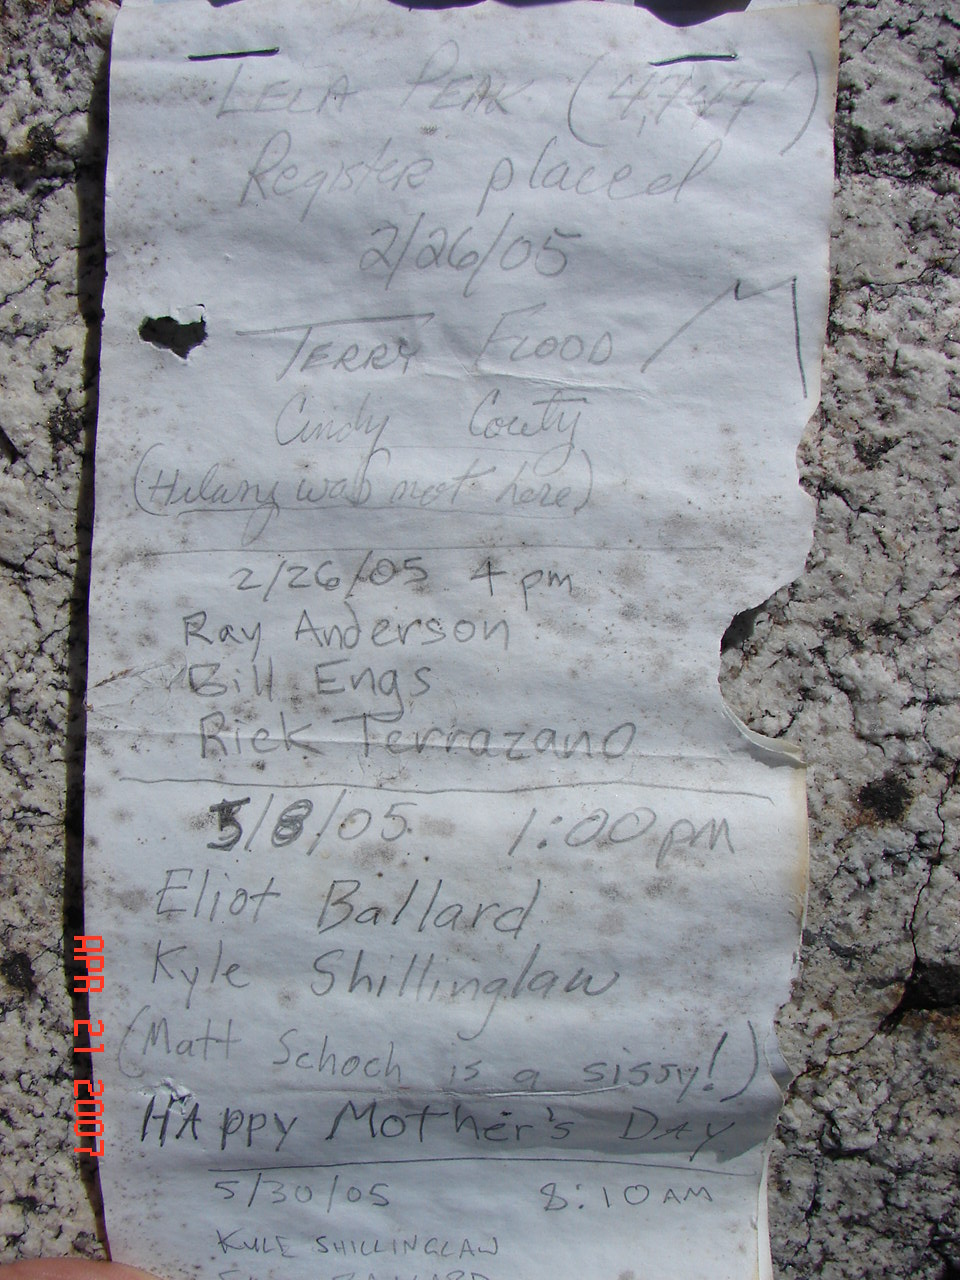 LELA PEAK (4,747')
Register placed
2/26/05
TERRY FLOOD
Cindy
was not here)
2/26/05 4 pm
Ray Anderson
Bill Engs
Rick Terrazano
5/8/05 1:00 pm
Eliot Ballard
Kyle Shillinglaw
(Matt Schoch is a sissy!)
HAppy Mother's DAy
5/30/05 8:10 AM
KYLE SHILLINGLAW
APR 21 2007